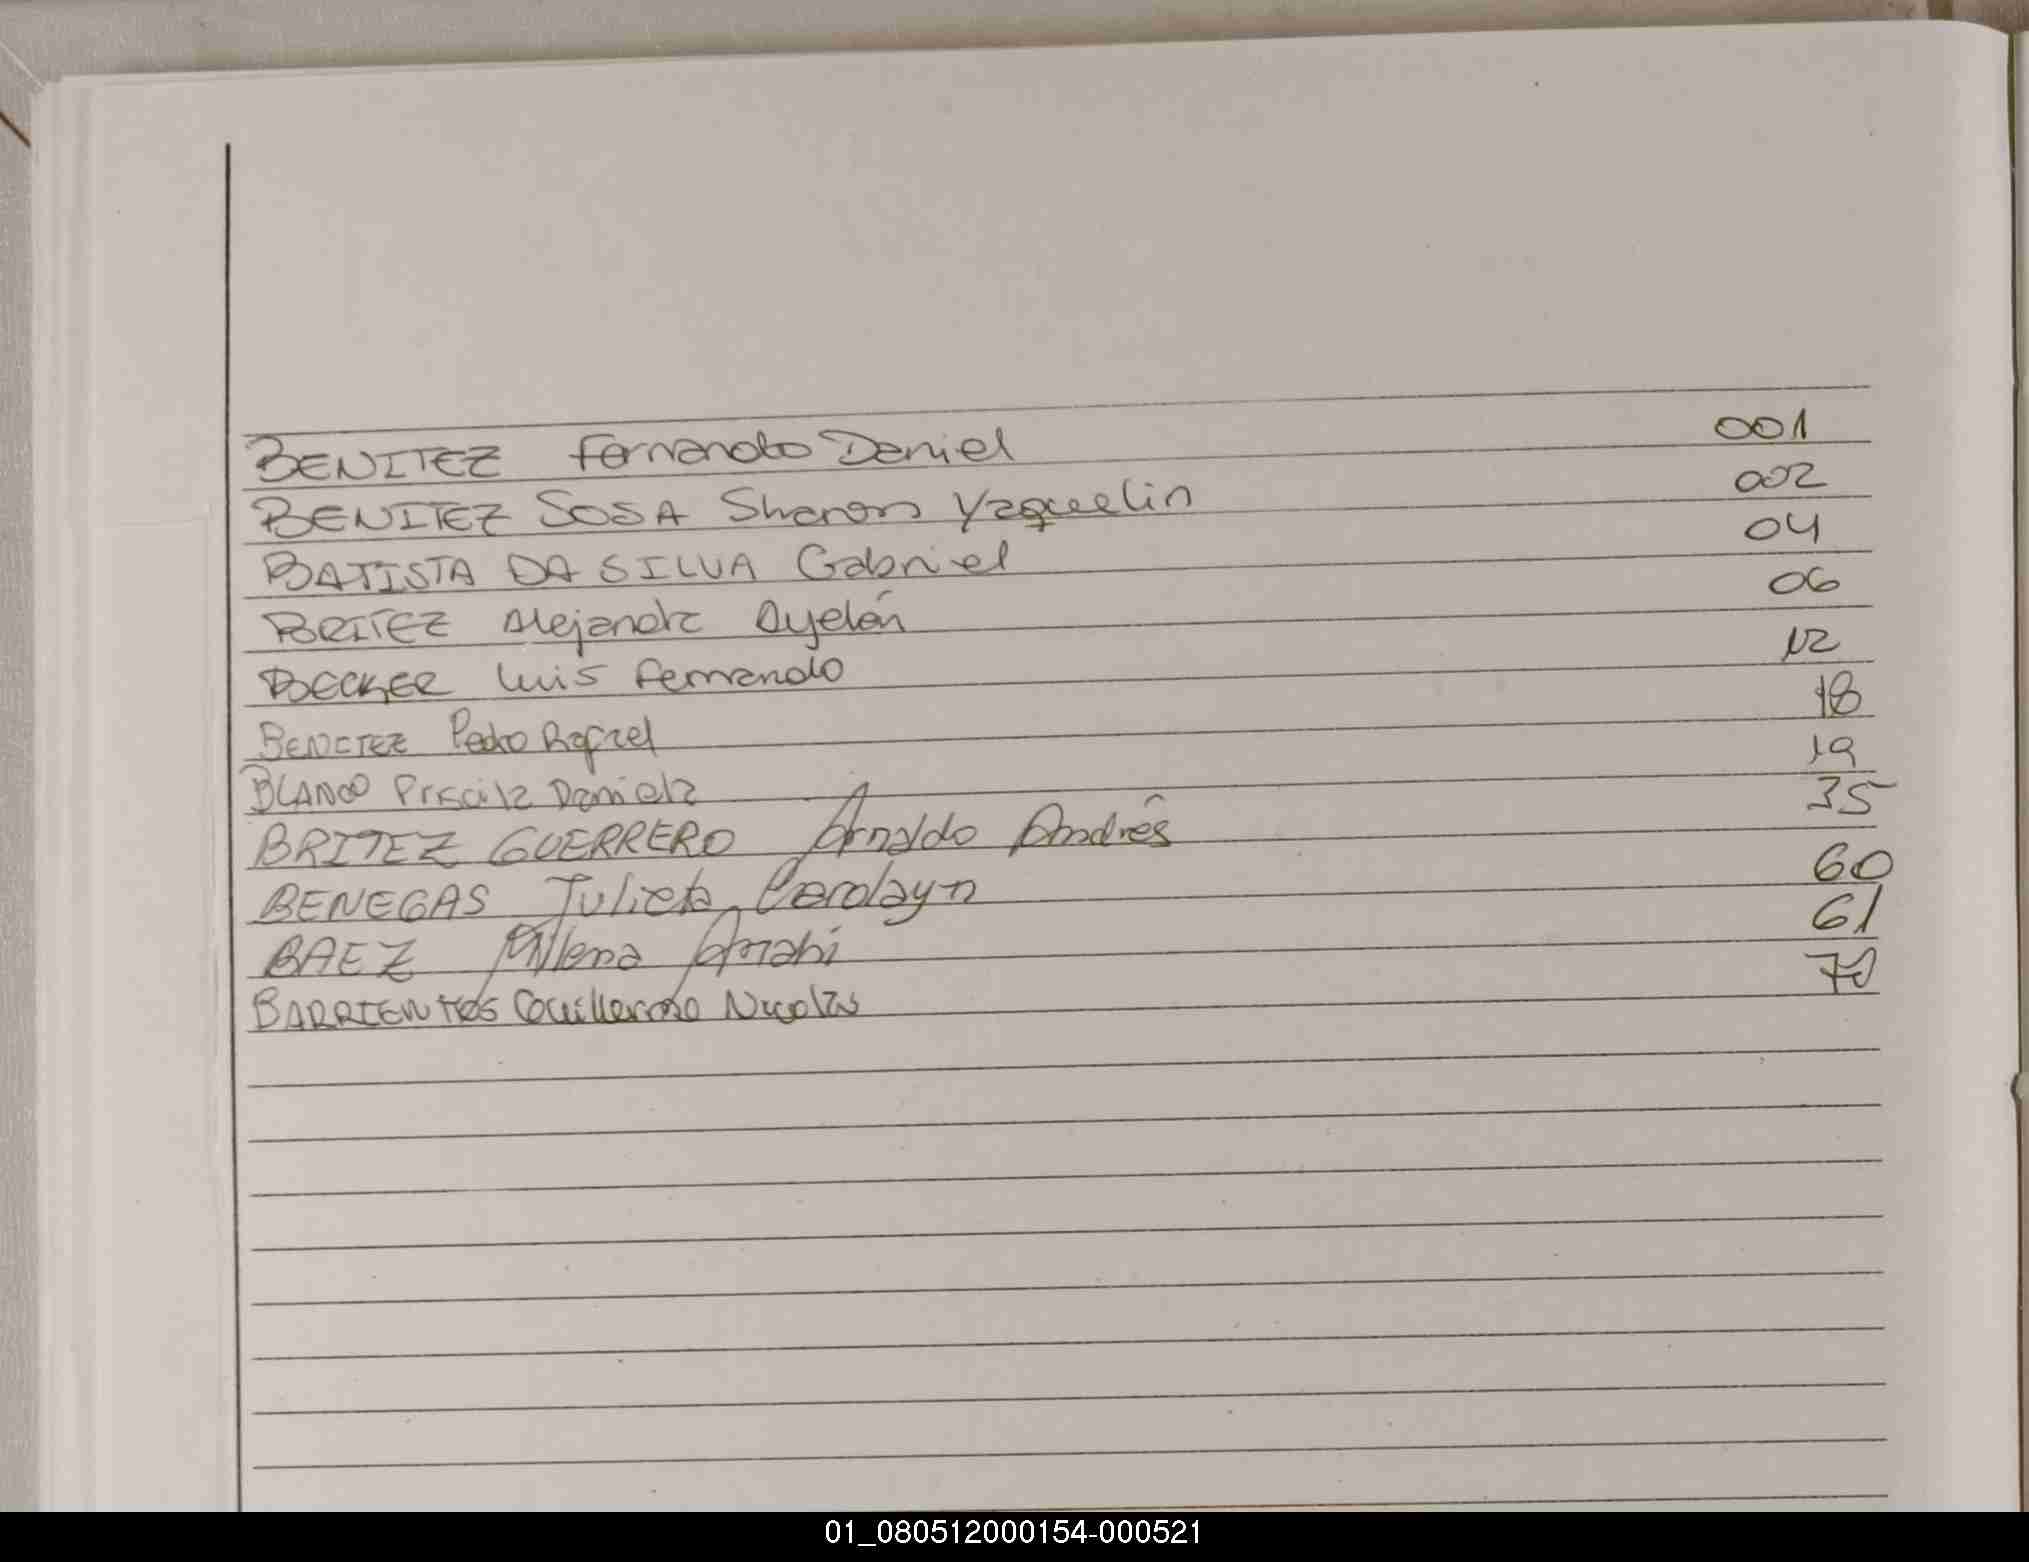 BENITEZ Fernando Daniel 001
BENITEZ SOSA Sharon Yaquelin 002
BATISTA DA SILVA Gabriel 04
BRITEZ Alejandra Ayelén 06
BECKER Luis Fernando 12
BENITEZ Pedro Rafael 18
BLANCO Priscila Daniela 19
BRITEZ GUERRERO Arnaldo Andrés 35
BENEGAS Julieta Carolayn 60
BAEZ Millena Anahi 61
BARRIENTOS Guillermo Nicolás 70
01_080512000154-000521